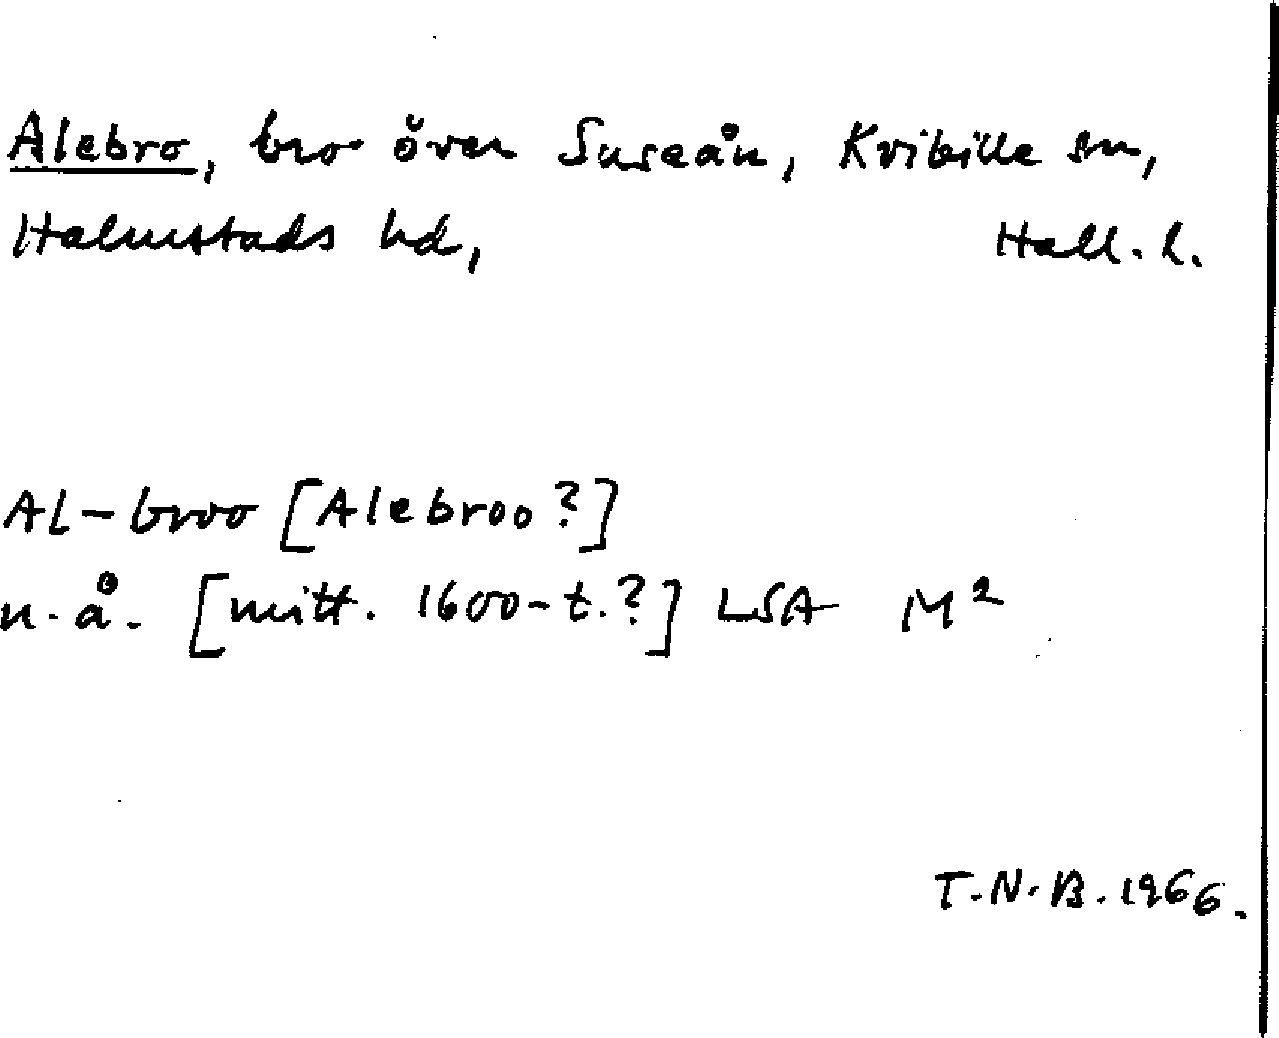 Alebro, bro över Suseån, Kvibille sn,
Halmstads hd, Hall. l.
AL-broo [Alebroo?]
n.å. [mitt. 1600-t.?] LSA M²
T.N.B. 1966.